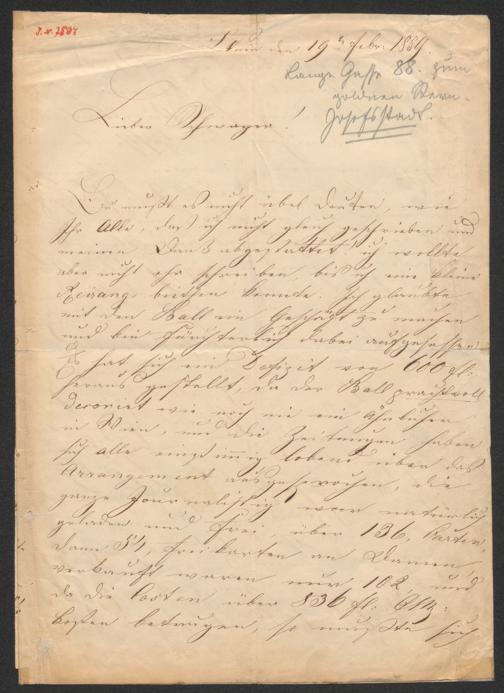 Wien den 19t Febr. 1889.
Lange Gasse 88. zum
goldnen Stern.
Josefsstadt.
Lieber Schwager!
Du mußt es nicht übel deuten, wie
Ihr Alle, daß ich nicht gleich geschrieben und
meinen Dank abgestattet, ich wollte
aber nicht ehr schreiben, bis ich eine kleine
biethen konnte. Ich glaubte
mit den Ball ein Geschäft zu machen
und bin fürchterlich dabei aufgesessen;
Es hat sich ein Defizit von 600 fl:
heraus gestellt, da der Ball prachtvoll
decoriert wie noch nie ein ähnlicher
in Wien, und die Zeitungen haben
sich alle einstimmig lobend über das
Arrangement ausgesprochen, die
ganze Journalistik war natürlich
geladen und frei, über 136, Karten,
dann 54, Freikarten an Damen,
verkauft waren nur 102 und
da die Kosten über 836 fl:
Kosten betragen, so mußte sich